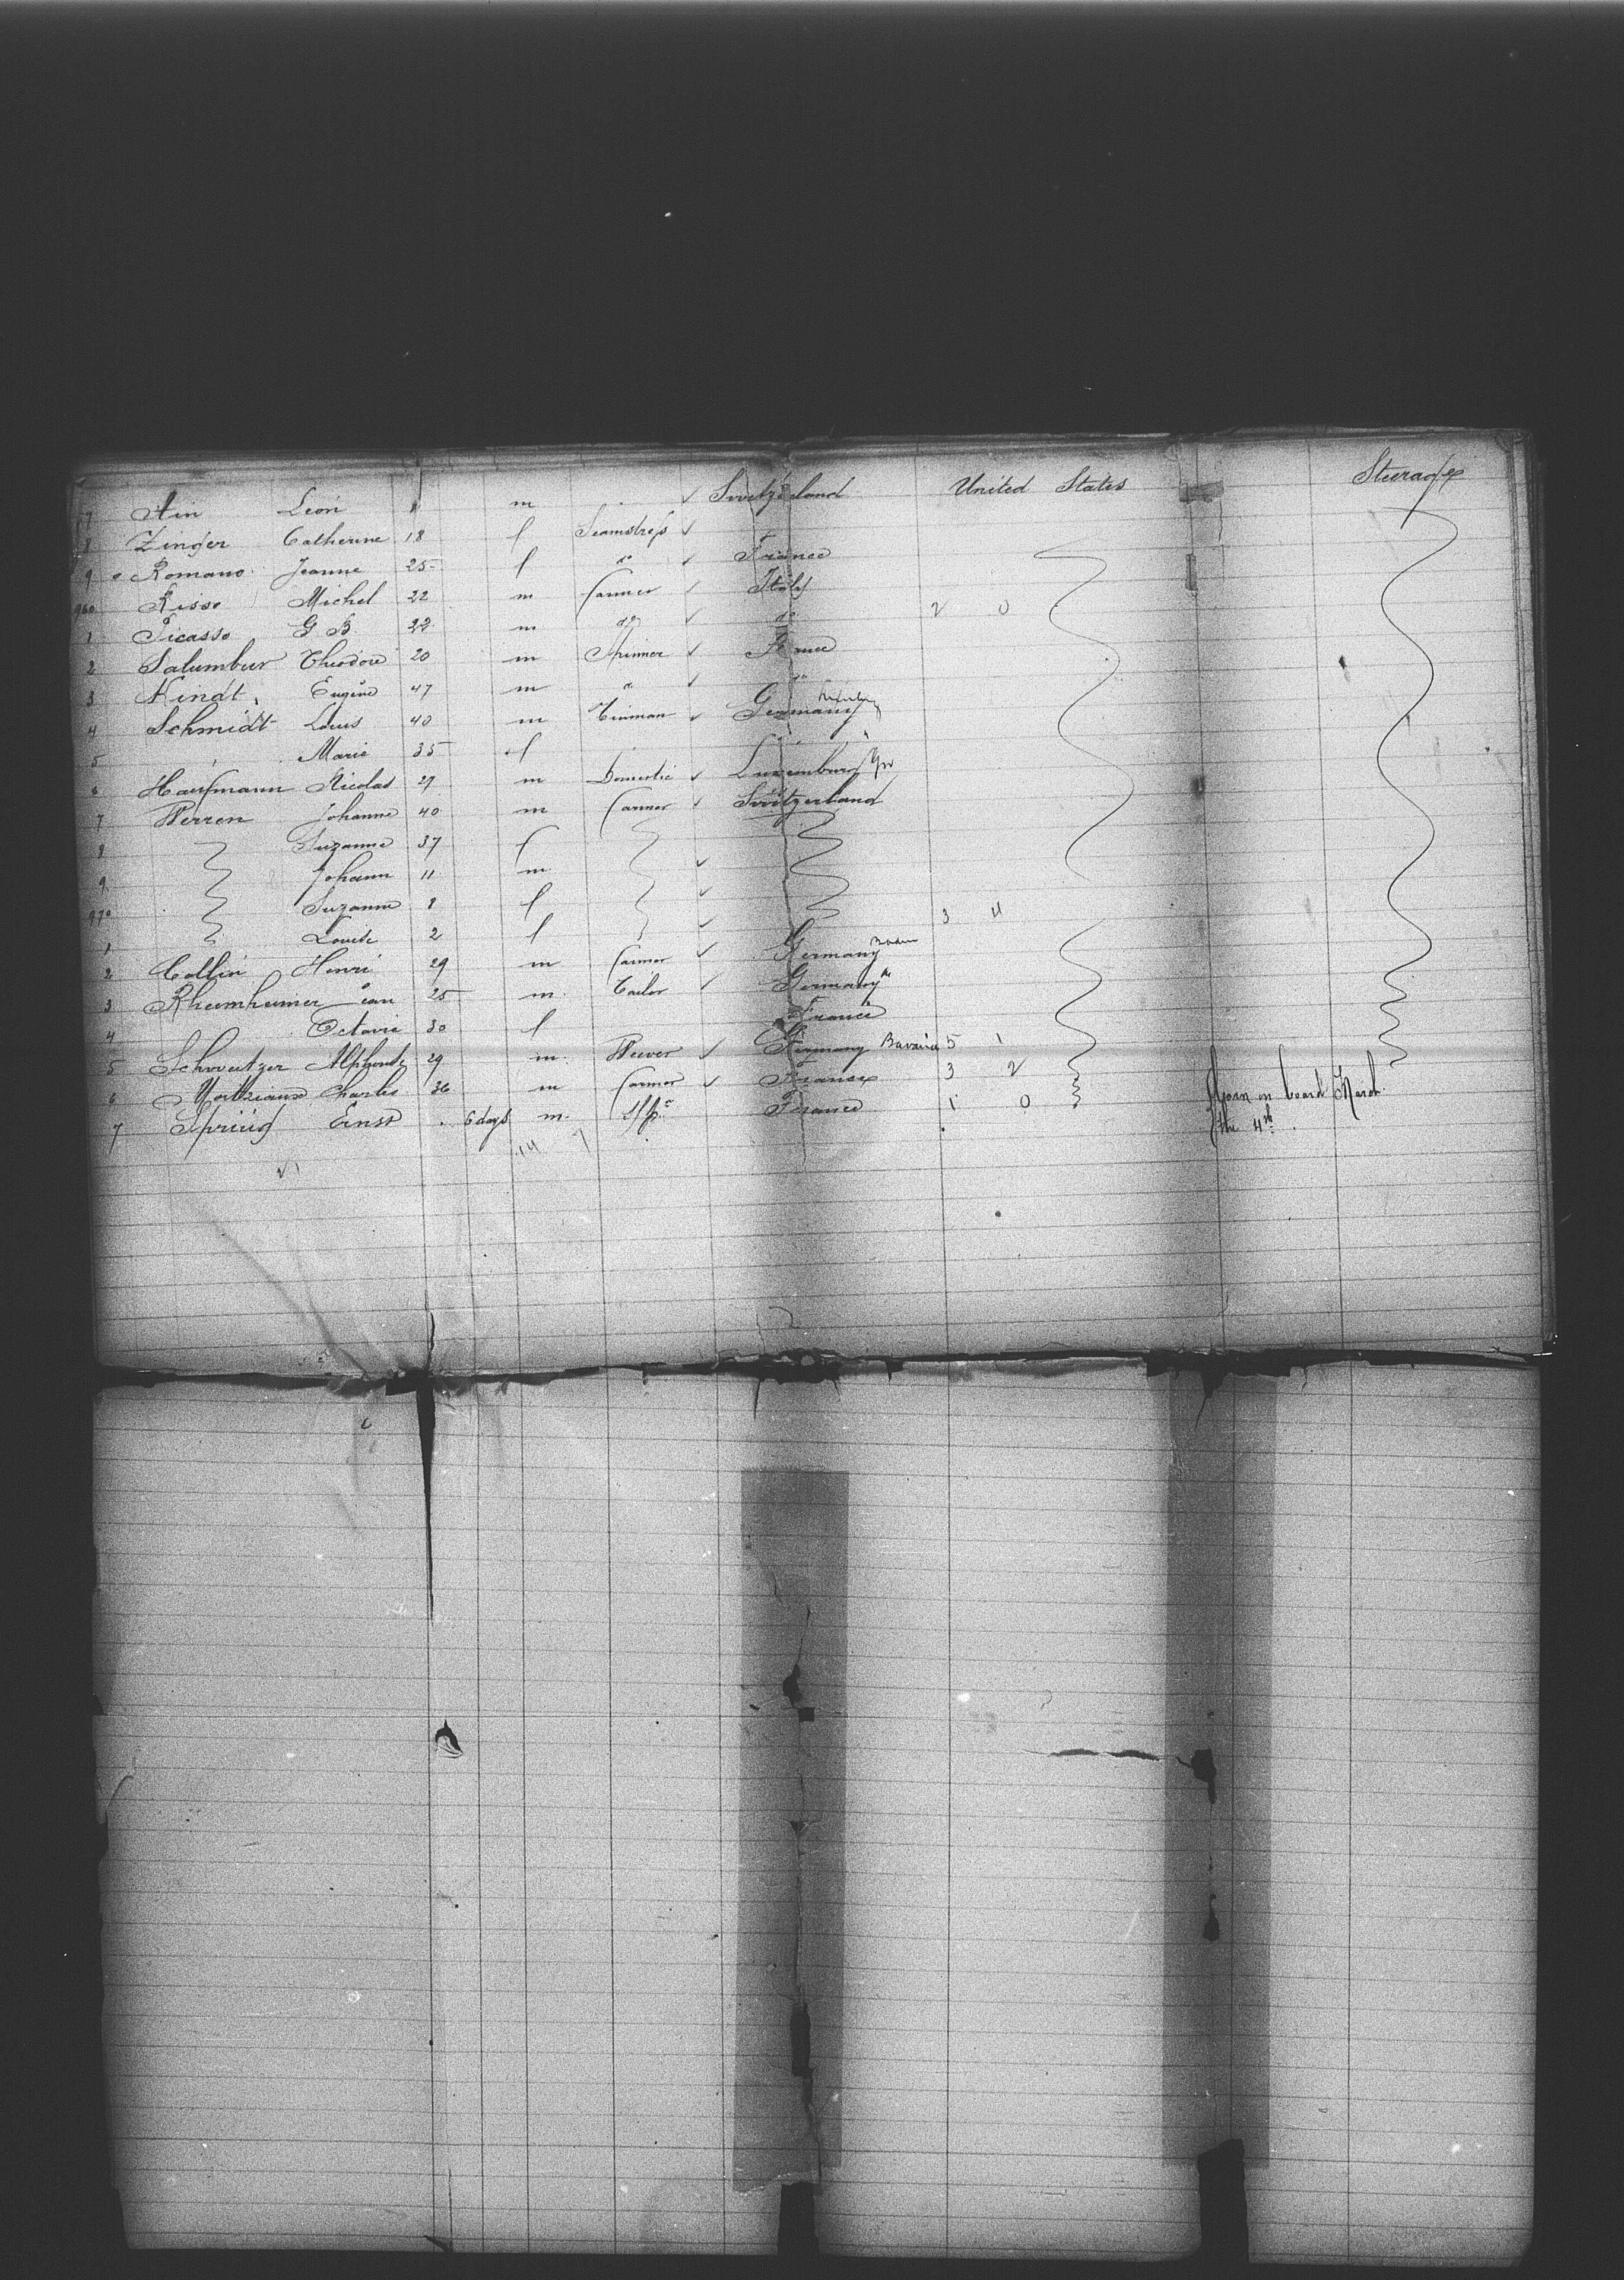 7 Ain Léon m ✓ Switzerland United States Steerage
8 Zinger Catherine 18 f Seamstress ✓
9 Romano Jeanne 25 f do ✓ France
960 Risso Michel 22 m farmer ✓ Italy
1 Picasso G B. 22 m do ✓ do 2 0
2 Salumbur Théodore 20 m Spinner ✓ France
3 Kindt Eugène 47 m " ✓ "
4 Schmidt Louis 40 m Tinman ✓ Germany
5 Marie 35 f
6 Haufmann Nicolas 27 m Domestic ✓ Luxemburg
7 Werren Johanne 40 m farmer ✓ Switzerland
8 Suzanne 37 f
9 Johann 11 m ✓
970 Suzanne 8 f ✓
1 Louise 2 f ✓ 3 4
2 Collin Henri 29 m farmer ✓ Germany Baden
3 Rheimheimer Jean 25 m. Tailor ✓ Germany
4 Octavie 30 f France
5 Schweitzer Alphonse 29 m. Wever ✓ Germany Bavaria 5 1
6 Charles 36 m farmer ✓ France 3 2
7 Ernst 6 days m. France 1 0 Born on board March
the 4th
21 14 7